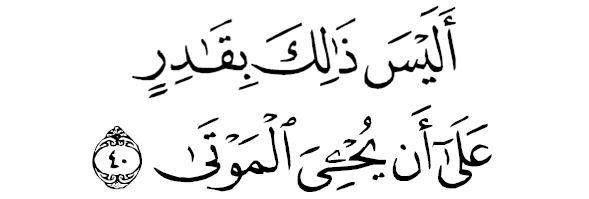 أَلَيْسَ ذَٰلِكَ بِقَٰدِرٍ
عَلَىٰٓ أَن يُحْـِۧىَ ٱلْمَوْتَىٰ ٤٠